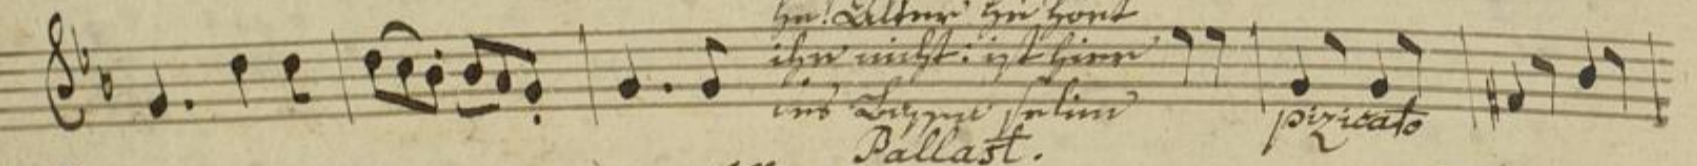 he! Alter hü hört
ihr nicht: ist hier
des Bassa Selim
Pallast.
pizicato